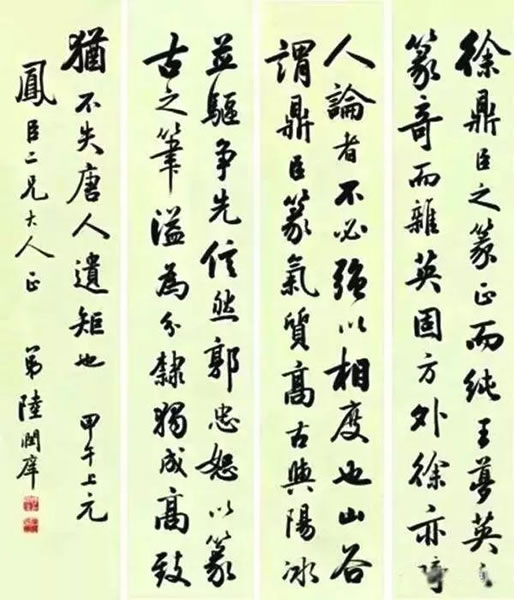 徐鼎臣之篆正而純王夢英之
篆奇而雜英固方外徐亦畸
人論者不必強以相度也山谷
謂鼎臣篆氣質高古與陽冰
並驅争先信然郭忠恕以篆
古之筆溢為分隸獨成高致
猶不失唐人遺矩也 甲午上元
鳳臣二兄大人正 弟陸潤庠